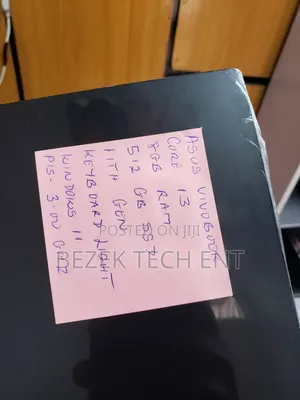 ASUS VIVOBOOK
CORE I3
8GB RAM
512 GB SSD
11TH GEN
KEYBOARD LIGHT
WINDOWS 11
PIS- 3.00 GHZ
POSTED ON JIJI
BEZEK TECH ENT